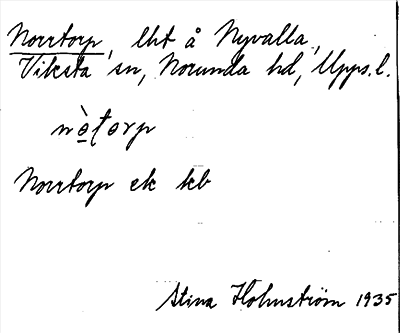 Norrtorp, lht å Nyvalla,
Viksta sn, Norunda hd, Upps. l.
nò̱torp
Norrtorp ek kb
Stina Holmström 1935